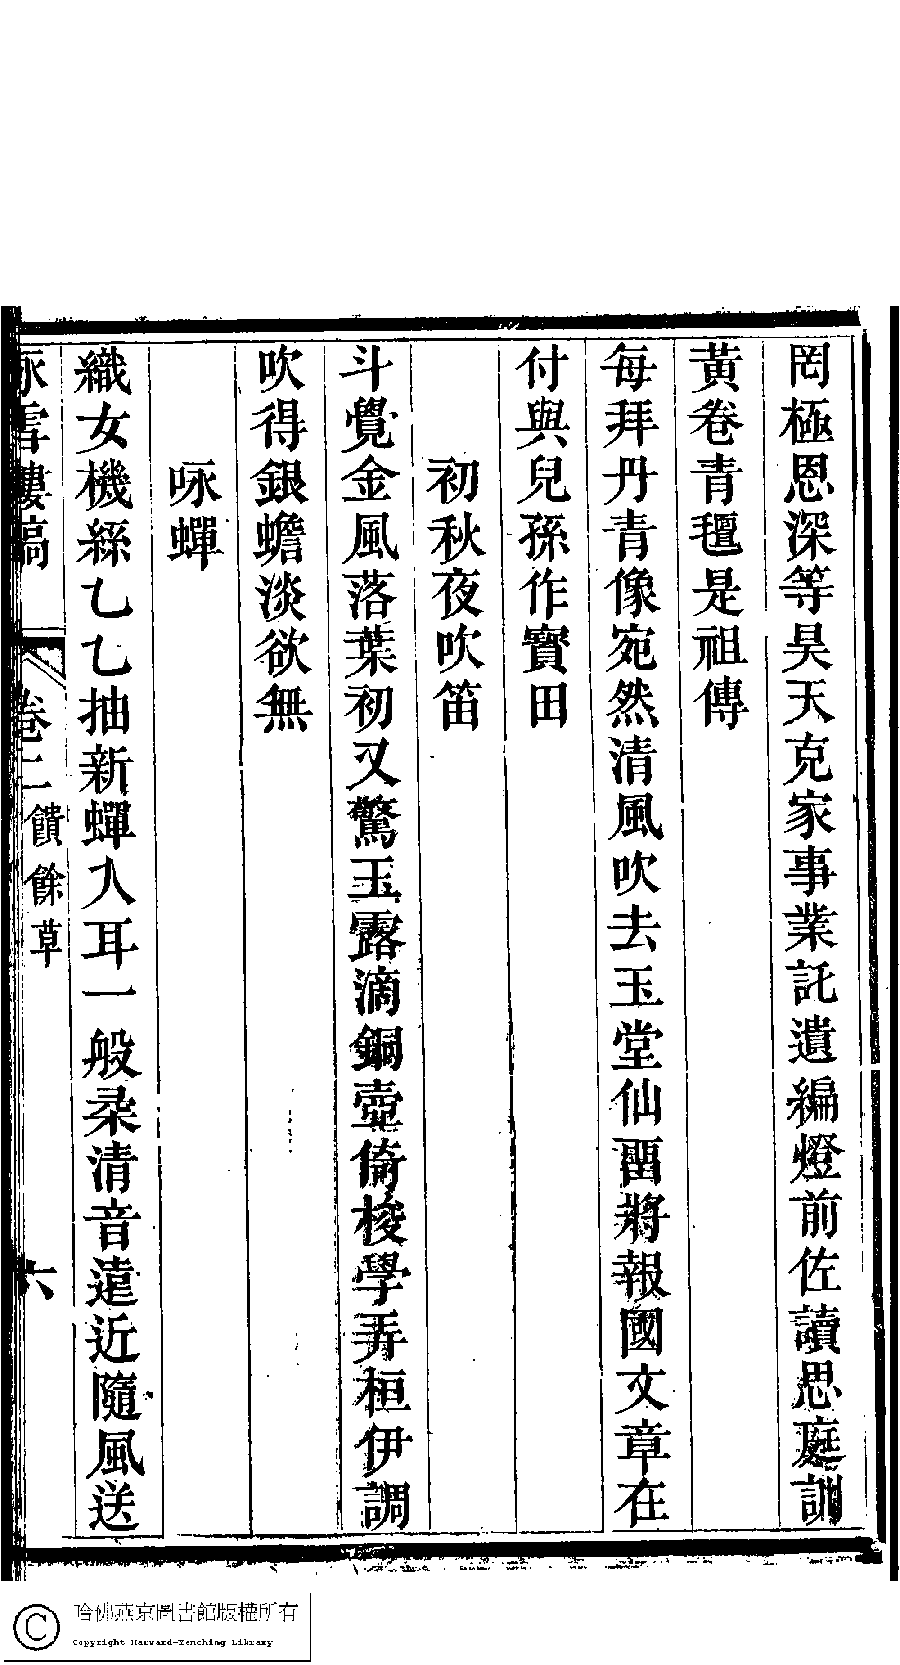 罔極恩深等昊天克家事業託遺編燈前佐讀思庭訓
黃卷青氊是祖傳
每拜丹青像宛然清風吹去玉堂仙畱將報國文章在
付與兒孫作寶田
初秋夜吹笛
斗覺金風落葉初又驚玉露滴銅壺倚梭學弄桓伊調
吹得銀蟾淡欲無
咏蟬
織女機絲乙乙抽新蟬入耳一般柔清音遠近隨風送
咏雪樓稿
卷二
饋餘草
六
哈佛燕京圖書館版權所有
Copyright Harvard-Yenching Library